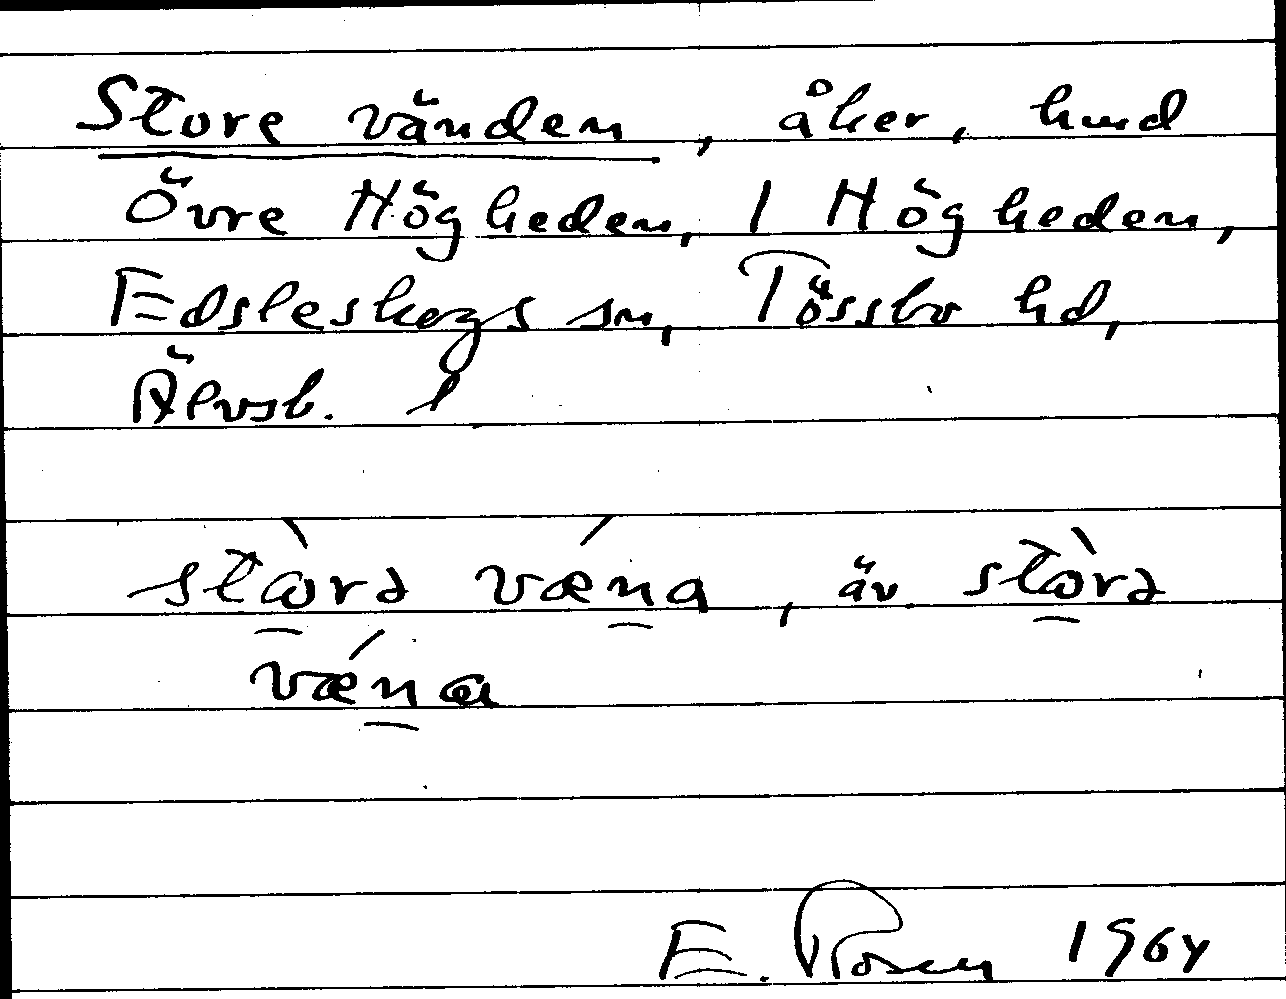 Store vänden, åker, hmd
Övre Högheden, 1 Högheden,
Edsleskogs sn, Tössbo hd,
Älvsb. l
stòrə vǽna, äv stòrə
vǽna
E. Rosen 1964